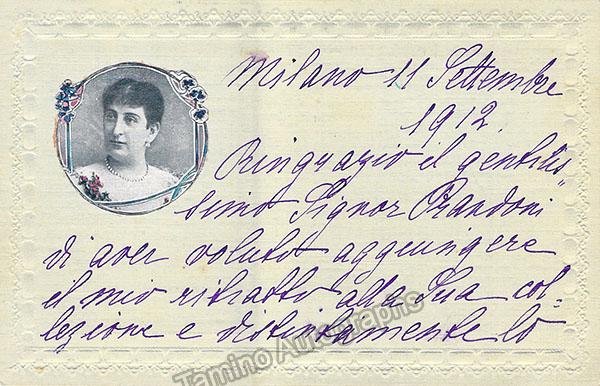 Milano 11 Settembre
1912.
Ringrazio il gentilis=
simo Signor Brandoni
di aver voluto aggiungere
il mio ritratto alla Sua col=
lezione e distintamente lo
Tamino Autographs